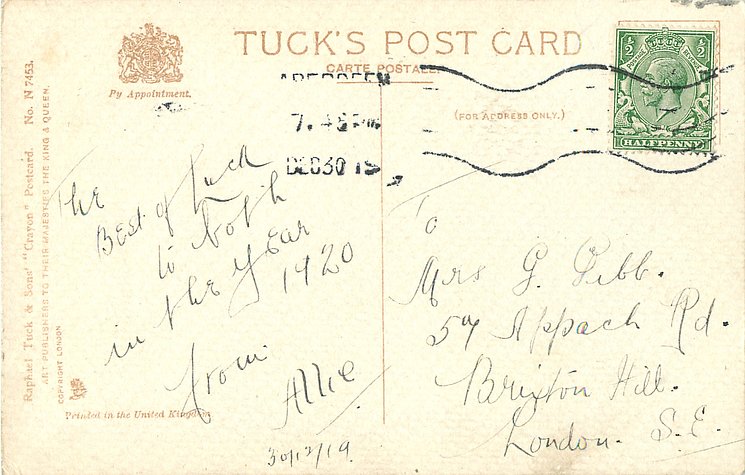 TUCK'S POST CARD
CARTE POSTALE
By Appointment.
(FOR ADDRESS ONLY.)
ABERDEEN
7.45 PM
DEC 30 19
½ ½
HALFPENNY
Raphael Tuck & Sons' "Crayon" Postcard. No. N 7453.
ART PUBLISHERS TO THEIR MAJESTIES THE KING & QUEEN.
COPYRIGHT LONDON
Printed in the United Kingdom
The
Best of Luck
to both
in the Year
1920
from
Allie
30/12/19
To
Mrs G. Gibb.
57 Appach Rd.
Brixton Hill.
London. S.E.